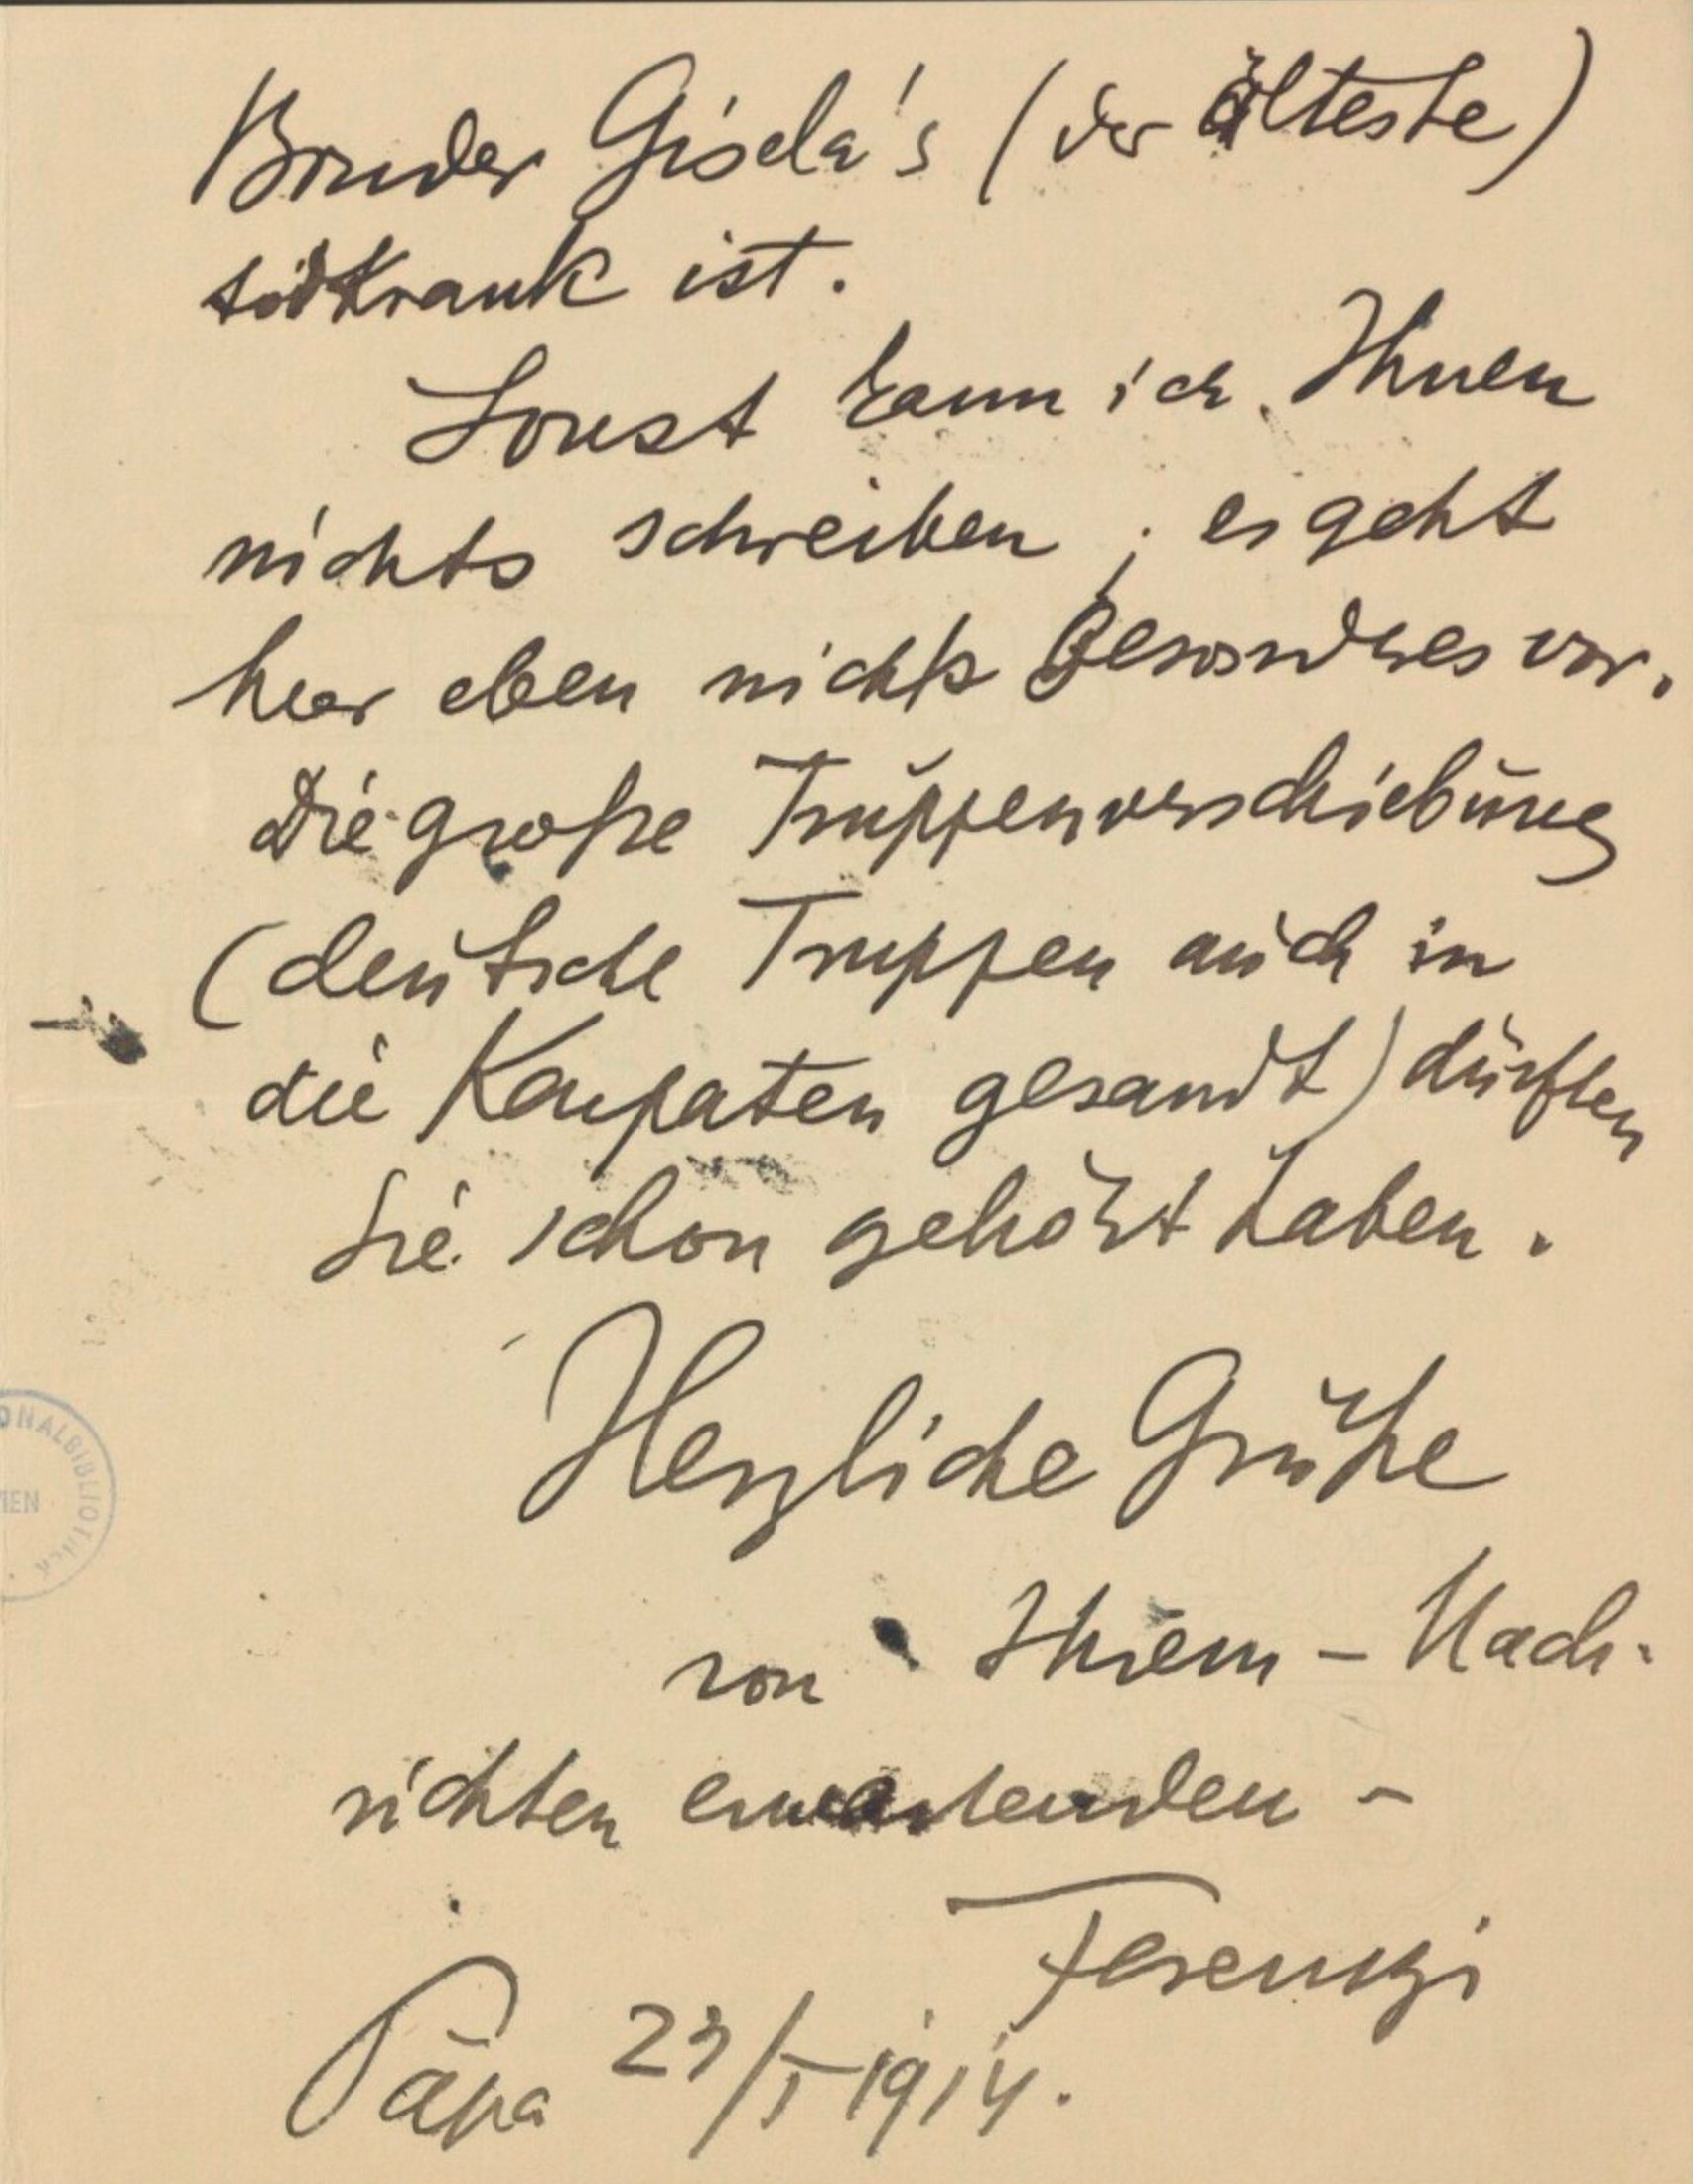 Bruder Gisela's (der älteste)
todkrank ist.
Sonst kann ich Ihnen
nichts schreiben; es geht
hier eben nichts Besondres vor.
Die große Truppenverschiebung
(deutsche Truppen auch in
die Karpaten gesandt) dürften
Sie schon gehört haben.
Herzliche Grüße
von Ihrem – Nach-
richten erwartenden –
Ferenczi
Pápa 23/I 1914.
ONALBIBLIOTHEK
IEN